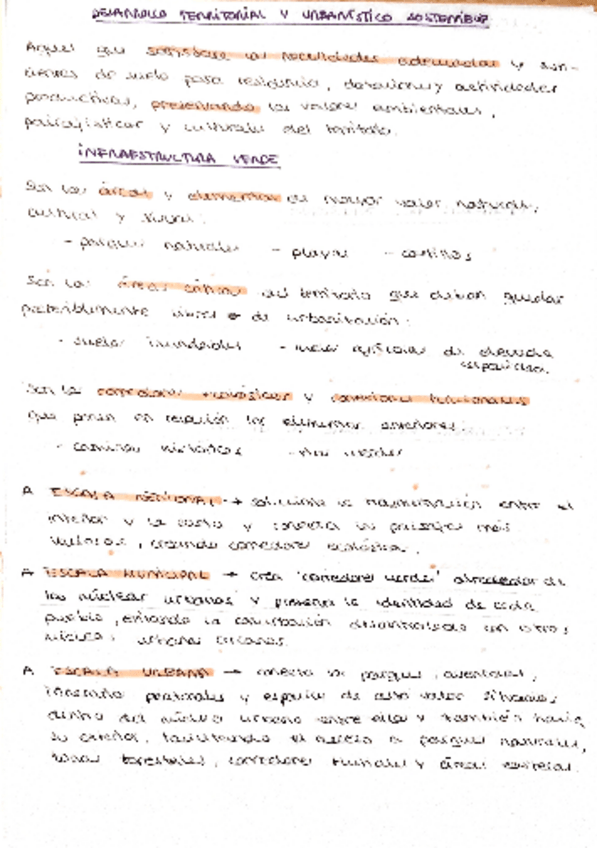 DESARROLLO TERRITORIAL Y URBANÍSTICO SOSTENIBLE
Aquel que satisface las necesidades adecuadas y
de suelo para residencia, dotaciones y actividades
productivas, preservando los valores ambientales,
paisajísticos y culturales del territorio.
INFRAESTRUCTURA VERDE
Son las áreas y elementos de mayor valor natural,
cultural y visual:
- parques naturales - playas - castillos
Son las áreas críticas del territorio que deban quedar
preferiblemente libres de urbanización:
- suelos inundables - suelos agrícolas de elevada
Son los corredores ecológicos y conexiones funcionales
que ponen en relación los elementos anteriores:
- caminos históricos - vías verdes
ESCALA REGIONAL → soluciona la entre el
interior y la costa y conecta los paisajes más
valiosos, creando corredores ecológicos.
ESCALA MUNICIPAL → crea "corredores verdes" alrededor de
los núcleos urbanos y preserva la identidad de cada
pueblo, evitando la conurbación descontrolada con otros
núcleos urbanos cercanos.
ESCALA URBANA → conecta los parques, avenidas,
itinerarios peatonales y espacios de alto valor situados
dentro del núcleo urbano entre ellos y también hacia
su exterior, facilitando el acceso a parques naturales,
zonas forestales, corredores fluviales y áreas costeras.